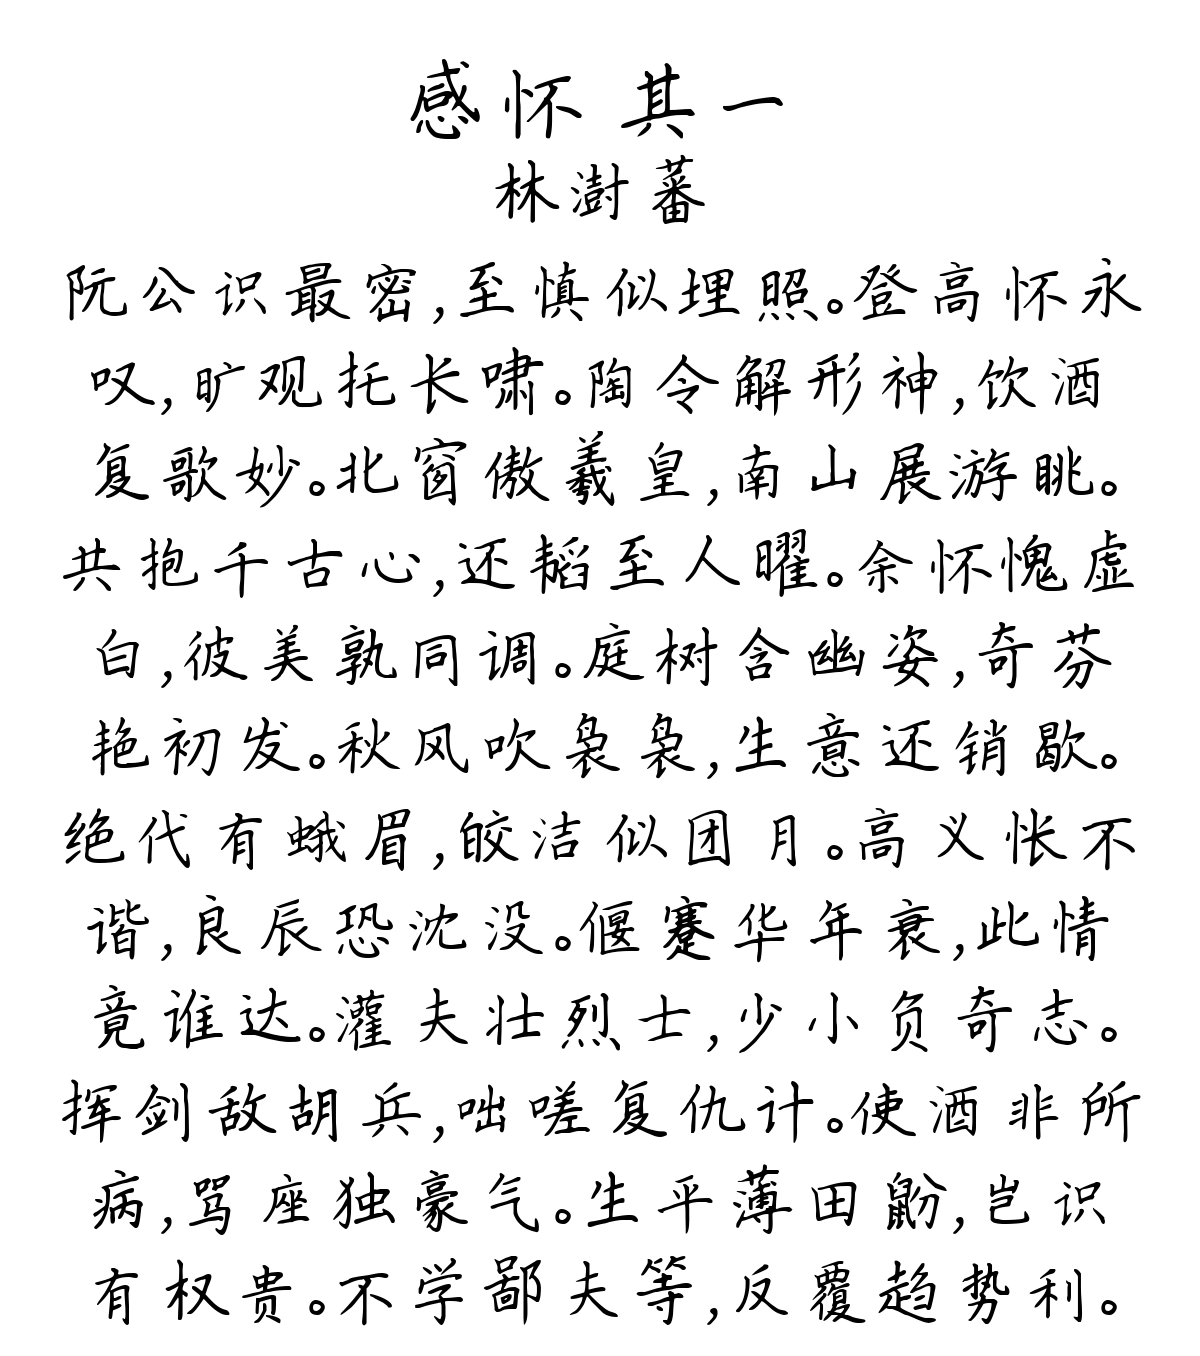 感怀 其一
林澍蕃
阮公识最密,至慎似埋照。登高怀永
叹,旷观托长啸。陶令解形神,饮酒
复歌妙。北窗傲羲皇,南山展游眺。
共抱千古心,还韬至人曜。余怀愧虚
白,彼美孰同调。庭树含幽姿,奇芬
艳初发。秋风吹袅袅,生意还销歇。
绝代有蛾眉,皎洁似团月。高义怅不
谐,良辰恐沈没。偃蹇华年衰,此情
竟谁达。灌夫壮烈士,少小负奇志。
挥剑敌胡兵,咄嗟复仇计。使酒非所
病,骂座独豪气。生平薄田鼢,岂识
有权贵。不学鄙夫等,反覆趋势利。